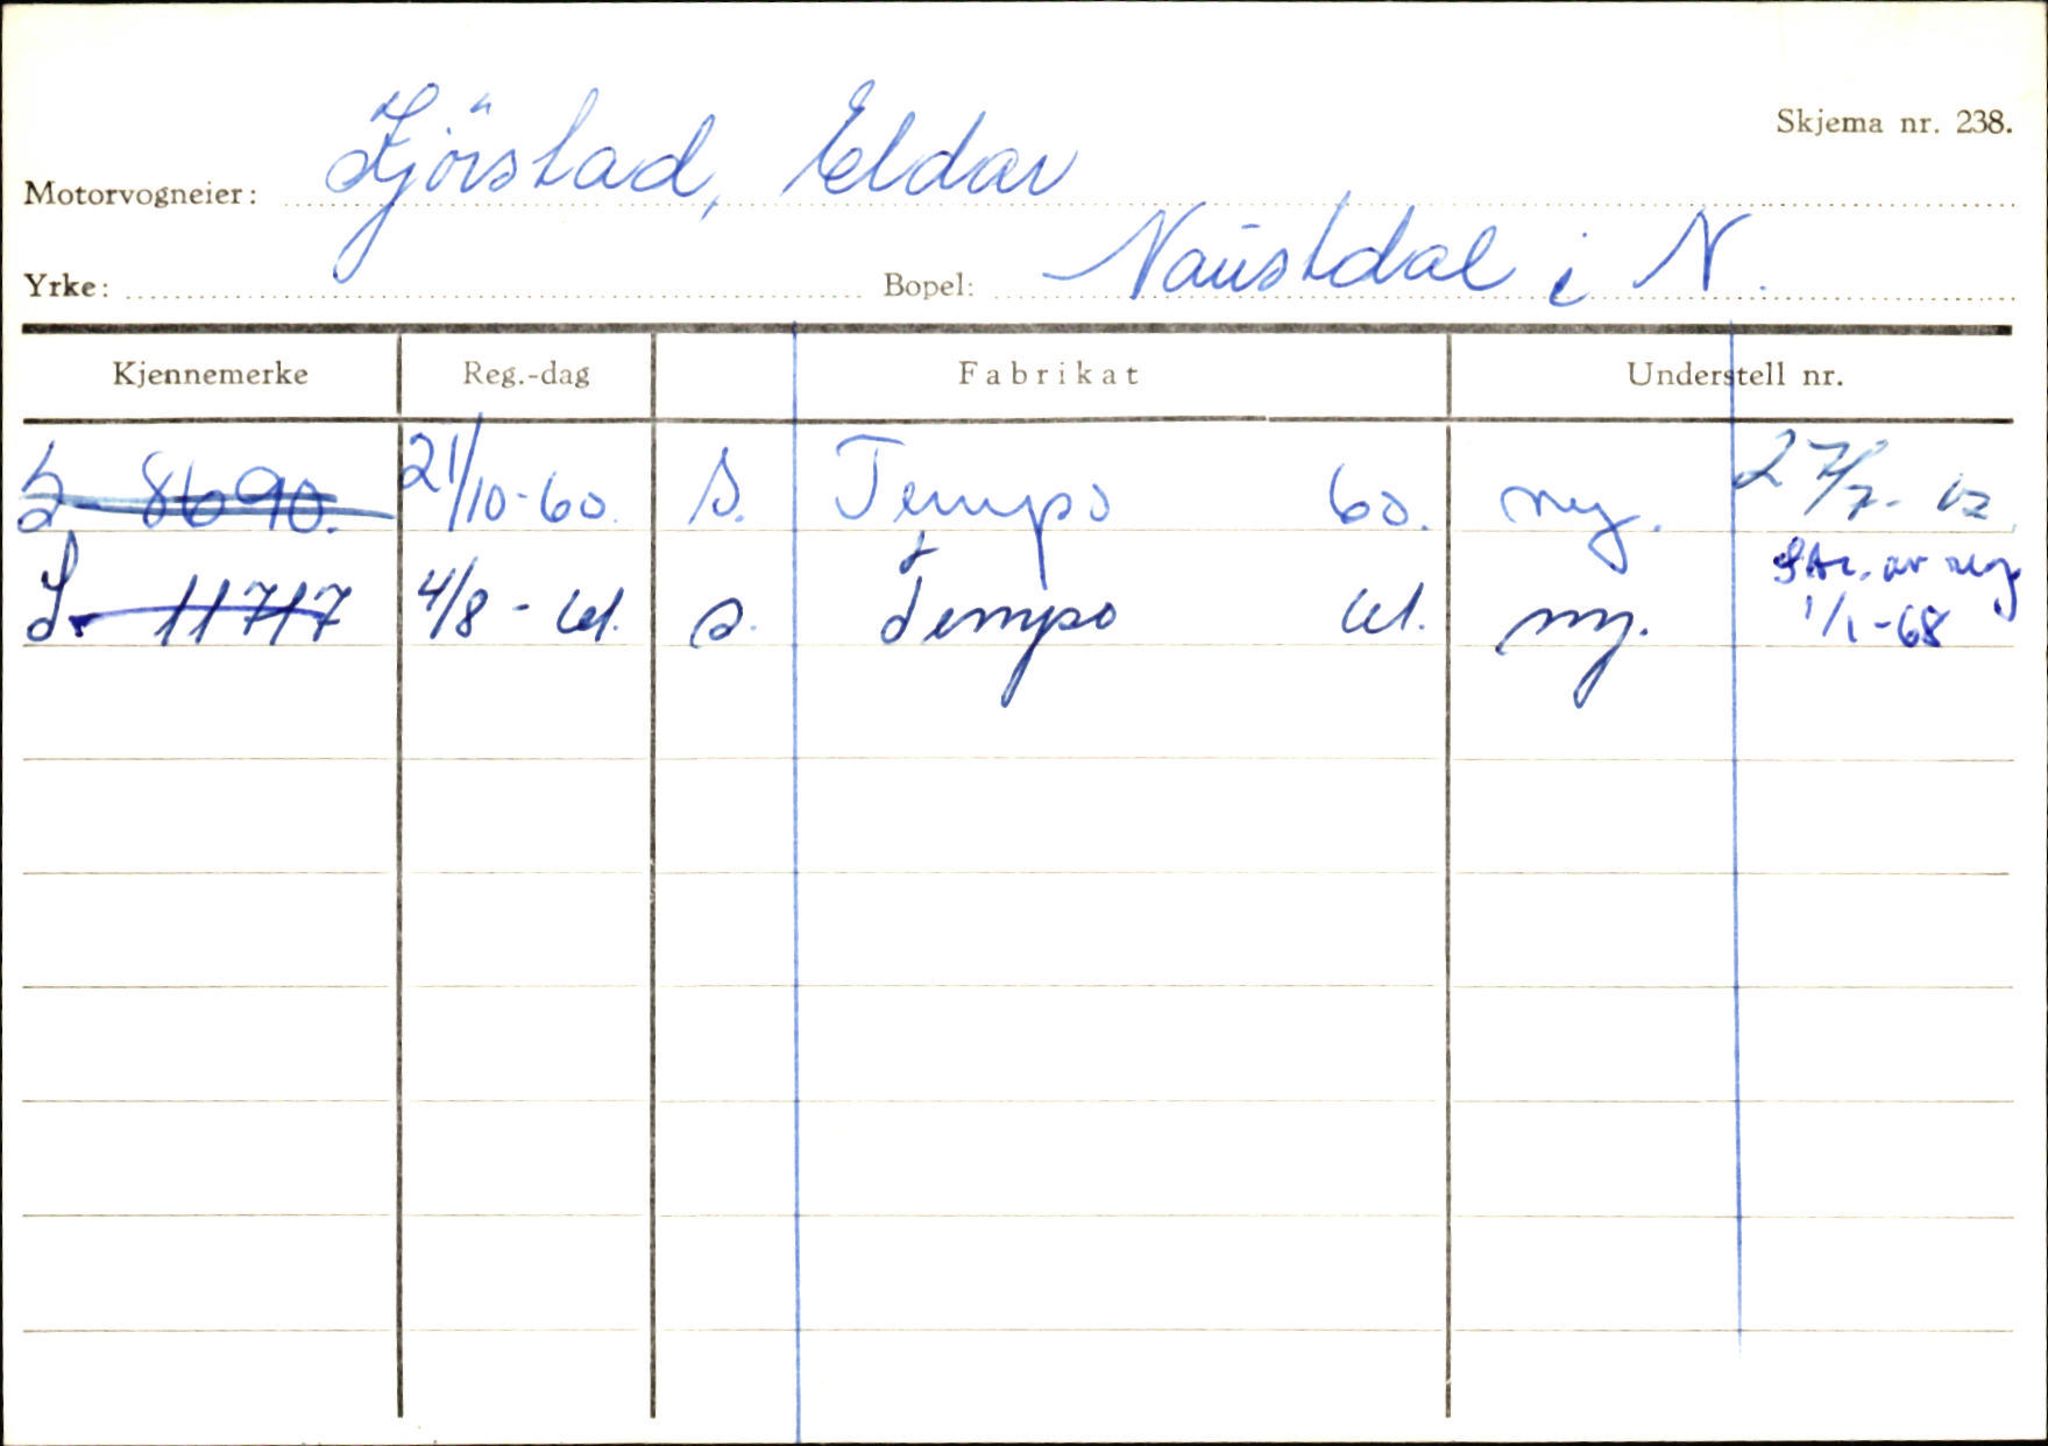 Skjema nr. 238.
Motorvogneier: Fjörstad, Eldar
Yrke: Bopel: Naustdal i N.
Kjennemerke Reg.-dag Fabrikat Understell nr.
S- 8690. 21/10-60. S. Tempo 60. ny. 27/7-
S- 11717 4/8-61. s. Tempo 61. ny. Str. av reg
1/1-68